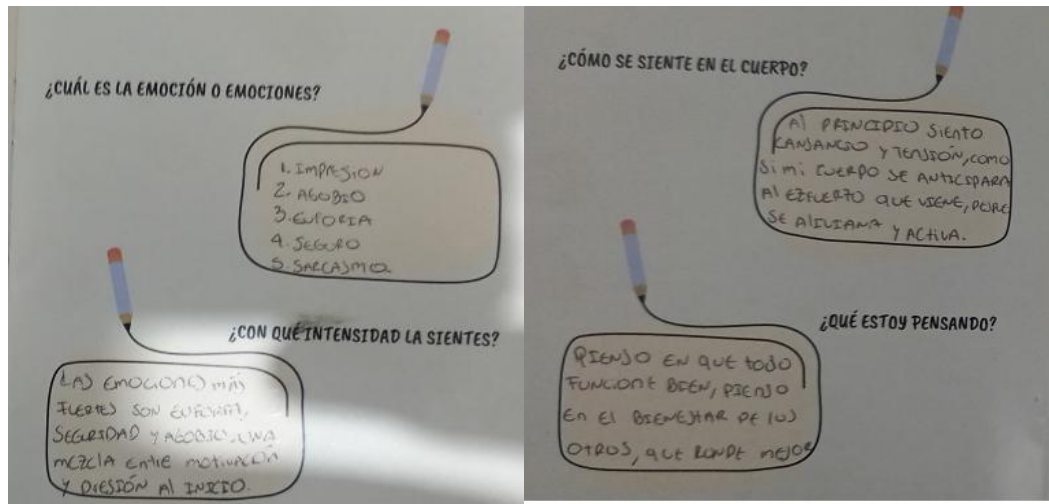 ¿CUÁL ES LA EMOCIÓN O EMOCIONES?
1. IMPRESION
2. AGOBIO
3. EUFORIA
4. SEGURO
5. SARCASMO.
¿CON QUÉ INTENSIDAD LA SIENTES?
LAS EMOCIONES MÁS
FUERTES SON EUFORIA,
SEGURIDAD Y AGOBIO, UNA
MEZCLA ENTRE MOTIVACIÓN
Y PRESIÓN Al INICIO.
¿CÓMO SE SIENTE EN EL CUERPO?
Al PRINCIPIO SIENTO
CANSANCIO Y TENSIÓN, COMO
Si mi CUERPO SE ANTICIPARA
Al EZFUERZO QUE VIENE,
SE ALIVIANA Y ACTIVA.
¿QUÉ ESTOY PENSANDO?
PIENSO EN QUE todo
FUNCIONE BIEN, PIENSO
En El BIENESTAR DE LOS
OTROS, QUE RONDE MEJOR